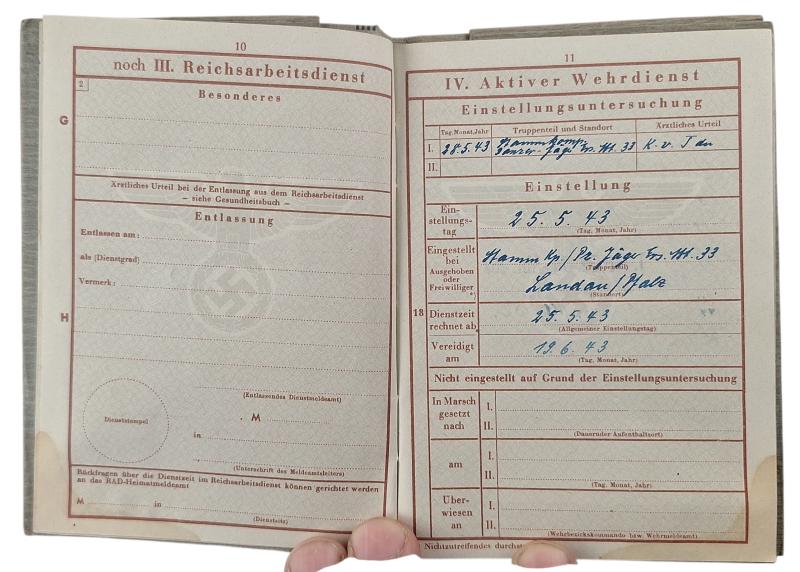 10
noch III. Reichsarbeitsdienst
2
Besonderes
G
Ärztliches Urteil bei der Entlassung aus dem Reichsarbeitsdienst
– siehe Gesundheitsbuch –
Entlassung
Entlassen am:
als (Dienstgrad)
Vermerk:
H
(Entlassendes Dienstmeldeamt)
Dienststempel
, M
in
(Unterschrift des Meldeamtsleiters)
Rückfragen über die Dienstzeit im Reichsarbeitsdienst können gerichtet werden
an das RAD-Heimatmeldeamt
M in
(Dienstsitz)
11
IV. Aktiver Wehrdienst
Einstellungsuntersuchung
Tag, Monat, Jahr Truppenteil und Standort Ärztliches Urteil
I. 28.5.43 Stammkomp. K. v.
Panzer-Jäg. Ers. Abt. 33
II.
Einstellung
Ein-
stellungs-
tag
25. 5. 43
(Tag, Monat, Jahr)
Eingestellt
bei
Ausgehoben
oder
Freiwilliger
Stamm Kp./Pz. Jäg. Ers. Abt. 33
(Truppenteil)
Landau/Pfalz
(Standort)
18
Dienstzeit
rechnet ab
25. 5. 43
(Allgemeiner Einstellungstag)
Vereidigt
am
19. 6. 43
(Tag, Monat, Jahr)
Nicht eingestellt auf Grund der Einstellungsuntersuchung
In Marsch
gesetzt
nach
I.
II.
(Dauernder Aufenthaltsort)
am
I.
II.
(Tag, Monat, Jahr)
Über-
wiesen
an
I.
II.
(Wehrbezirkskommando bzw. Wehrmeldeamt)
Nichtzutreffendes durchst